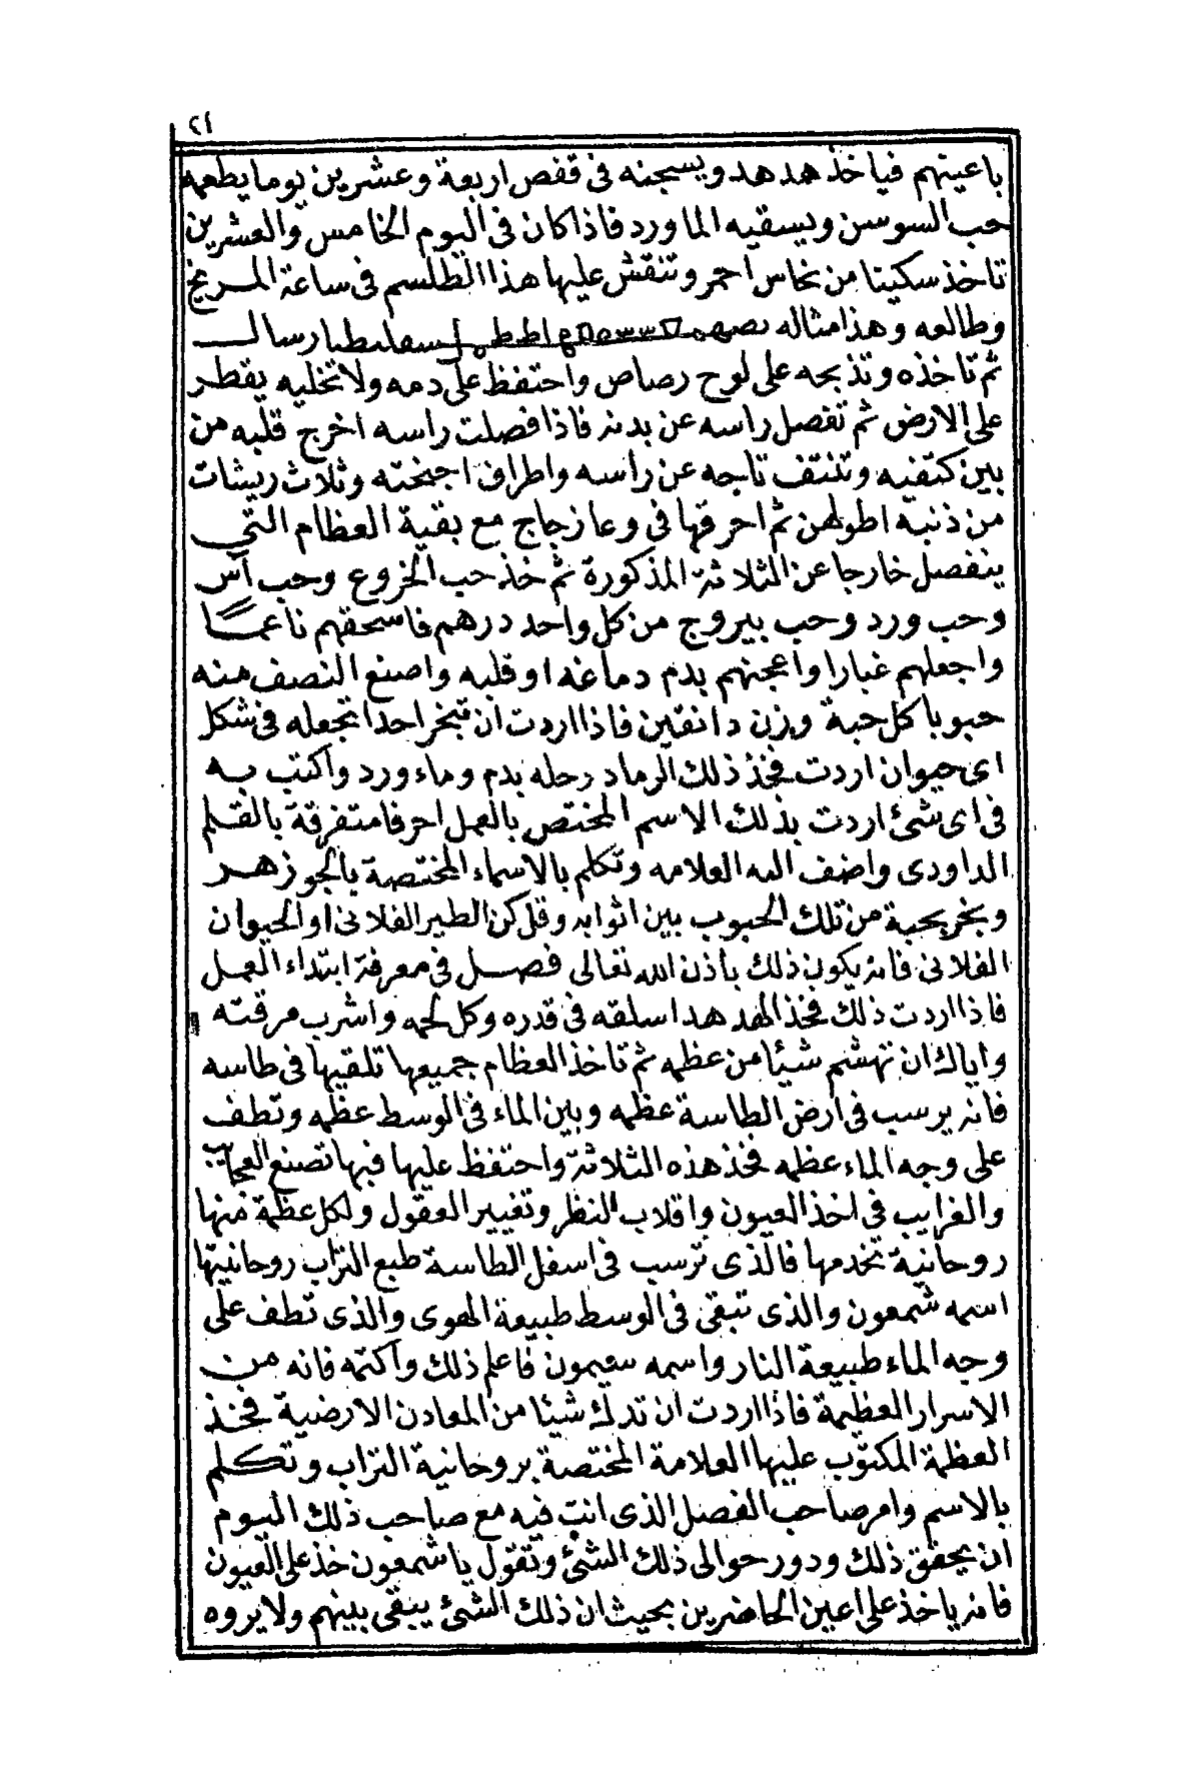 ٢١
باعينهم فياخذ هدهد ويسجنه فى قفص اربعة وعشرين يوما يطعمه
حب السوسن ويسقيه الماورد فاذا كان فى اليوم الخامس والعشرين
تاخذ سكينا من نحاس احمر وتنقش عليها هذا الطلسم فى ساعة المريخ
وطالعه وهذا مثاله
ثم تاخذه وتذبحه على لوح رصاص واحتفظ على دمه ولا تخليه يقطر
على الارض ثم تفصل راسه عن بدنه فاذا فصلت راسه اخرج قلبه من
بين كتفيه وتنتف تاجه عن راسه واطراف اجنحته وثلاث ريشات
من ذنبه اطولهن ثم احرقها فى وعا زجاج مع بقية العظام التى
ينفصل خارجا عن الثلاثة المذكورة ثم خذ حب الخروع وحب آس
وحب ورد وحب بيروج من كل واحد درهم فاسحقهم ناعمًا
واجعلهم غبارا واعجنهم بدم دماغه او قلبه واصنع النصف منه
حبوبا كل حبة وزن دانقين فاذا اردت ان تبخر احدا تجعله فى شكل
اى حيوان اردت فخذ ذلك الرماد وحله بدم وماء ورد واكتب به
فى اى شئ اردت بذلك الاسم المختص بالعمل احرفا متفرقة بالقلم
الداودى واضف اليه العلامه وتكلم بالاسماء المختصة بالجوزهر
وبخر بحبة من تلك الحبوب بين اثوابه وقل كن الطير الفلانى او الحيوان
الفلانى فانه يكون ذلك باذن الله تعالى فصل فى معرفة ابتداء العمل
فاذا اردت ذلك فخذ الهدهد اسلقه فى قدره وكل لحمه واشرب مرقته
واياك ان تهشم شيئا من عظمه ثم تاخذ العظام جميعها تلقيها فى طاسه
فانه يرسب فى ارض الطاسة عظمه وبين الماء فى الوسط عظمه وتطف
على وجه الماء عظمه فخذ هذه الثلاثة واحتفظ عليها فبها تصنع العجايب
والغرايب فى اخذ العيون واقلاب النظر وتغيير العقول ولكل عظمة منها
روحانية تخدمها فالذى ترسب فى اسفل الطاسة طبع التراب روحانيتها
اسمه شمعون والذى تبقى فى الوسط طبيعة الهوى والذى تطف على
وجه الماء طبيعة النار واسمه فاعلم ذلك واكتمه فانه من
الاسرار العظيمة فاذا اردت ان تدك شيئا من المعادن الارضية فخذ
العظمة المكتوب عليها العلامة المختصة بروحانية التراب وتكلم
بالاسم وامر صاحب الفصل الذى انت فيه مع صاحب ذلك اليوم
ان يحقق ذلك ودور حوالى ذلك الشئ وتقول يا شمعون خذ على العيون
فانه ياخذ على اعين الحاضرين بحيث ان ذلك الشئ يبقى بينهم ولا يروه